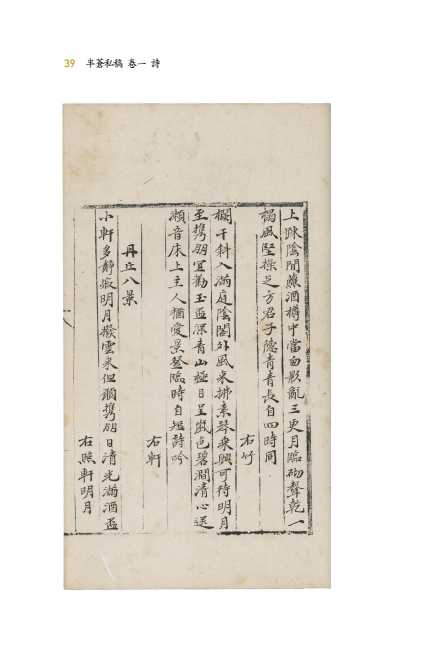 39 半蒼私稿 卷一 詩
上踈陰間蘸酒樽中當白影亂三更月臨砌聲乾一
榻風堅操足方君子德青青長自四時同
右竹
欄干斜入滿庭陰閣外風來拂素琴乘興可待明月
至携朋宜勸玉盃深青山極日呈嵐色碧澗清心送
瀨音床上主人猶愛景登臨時自短詩吟
右軒
丹丘八景
小軒多靜寂明月撥雲來但酌携朋日清光滿酒盃
右照軒明月